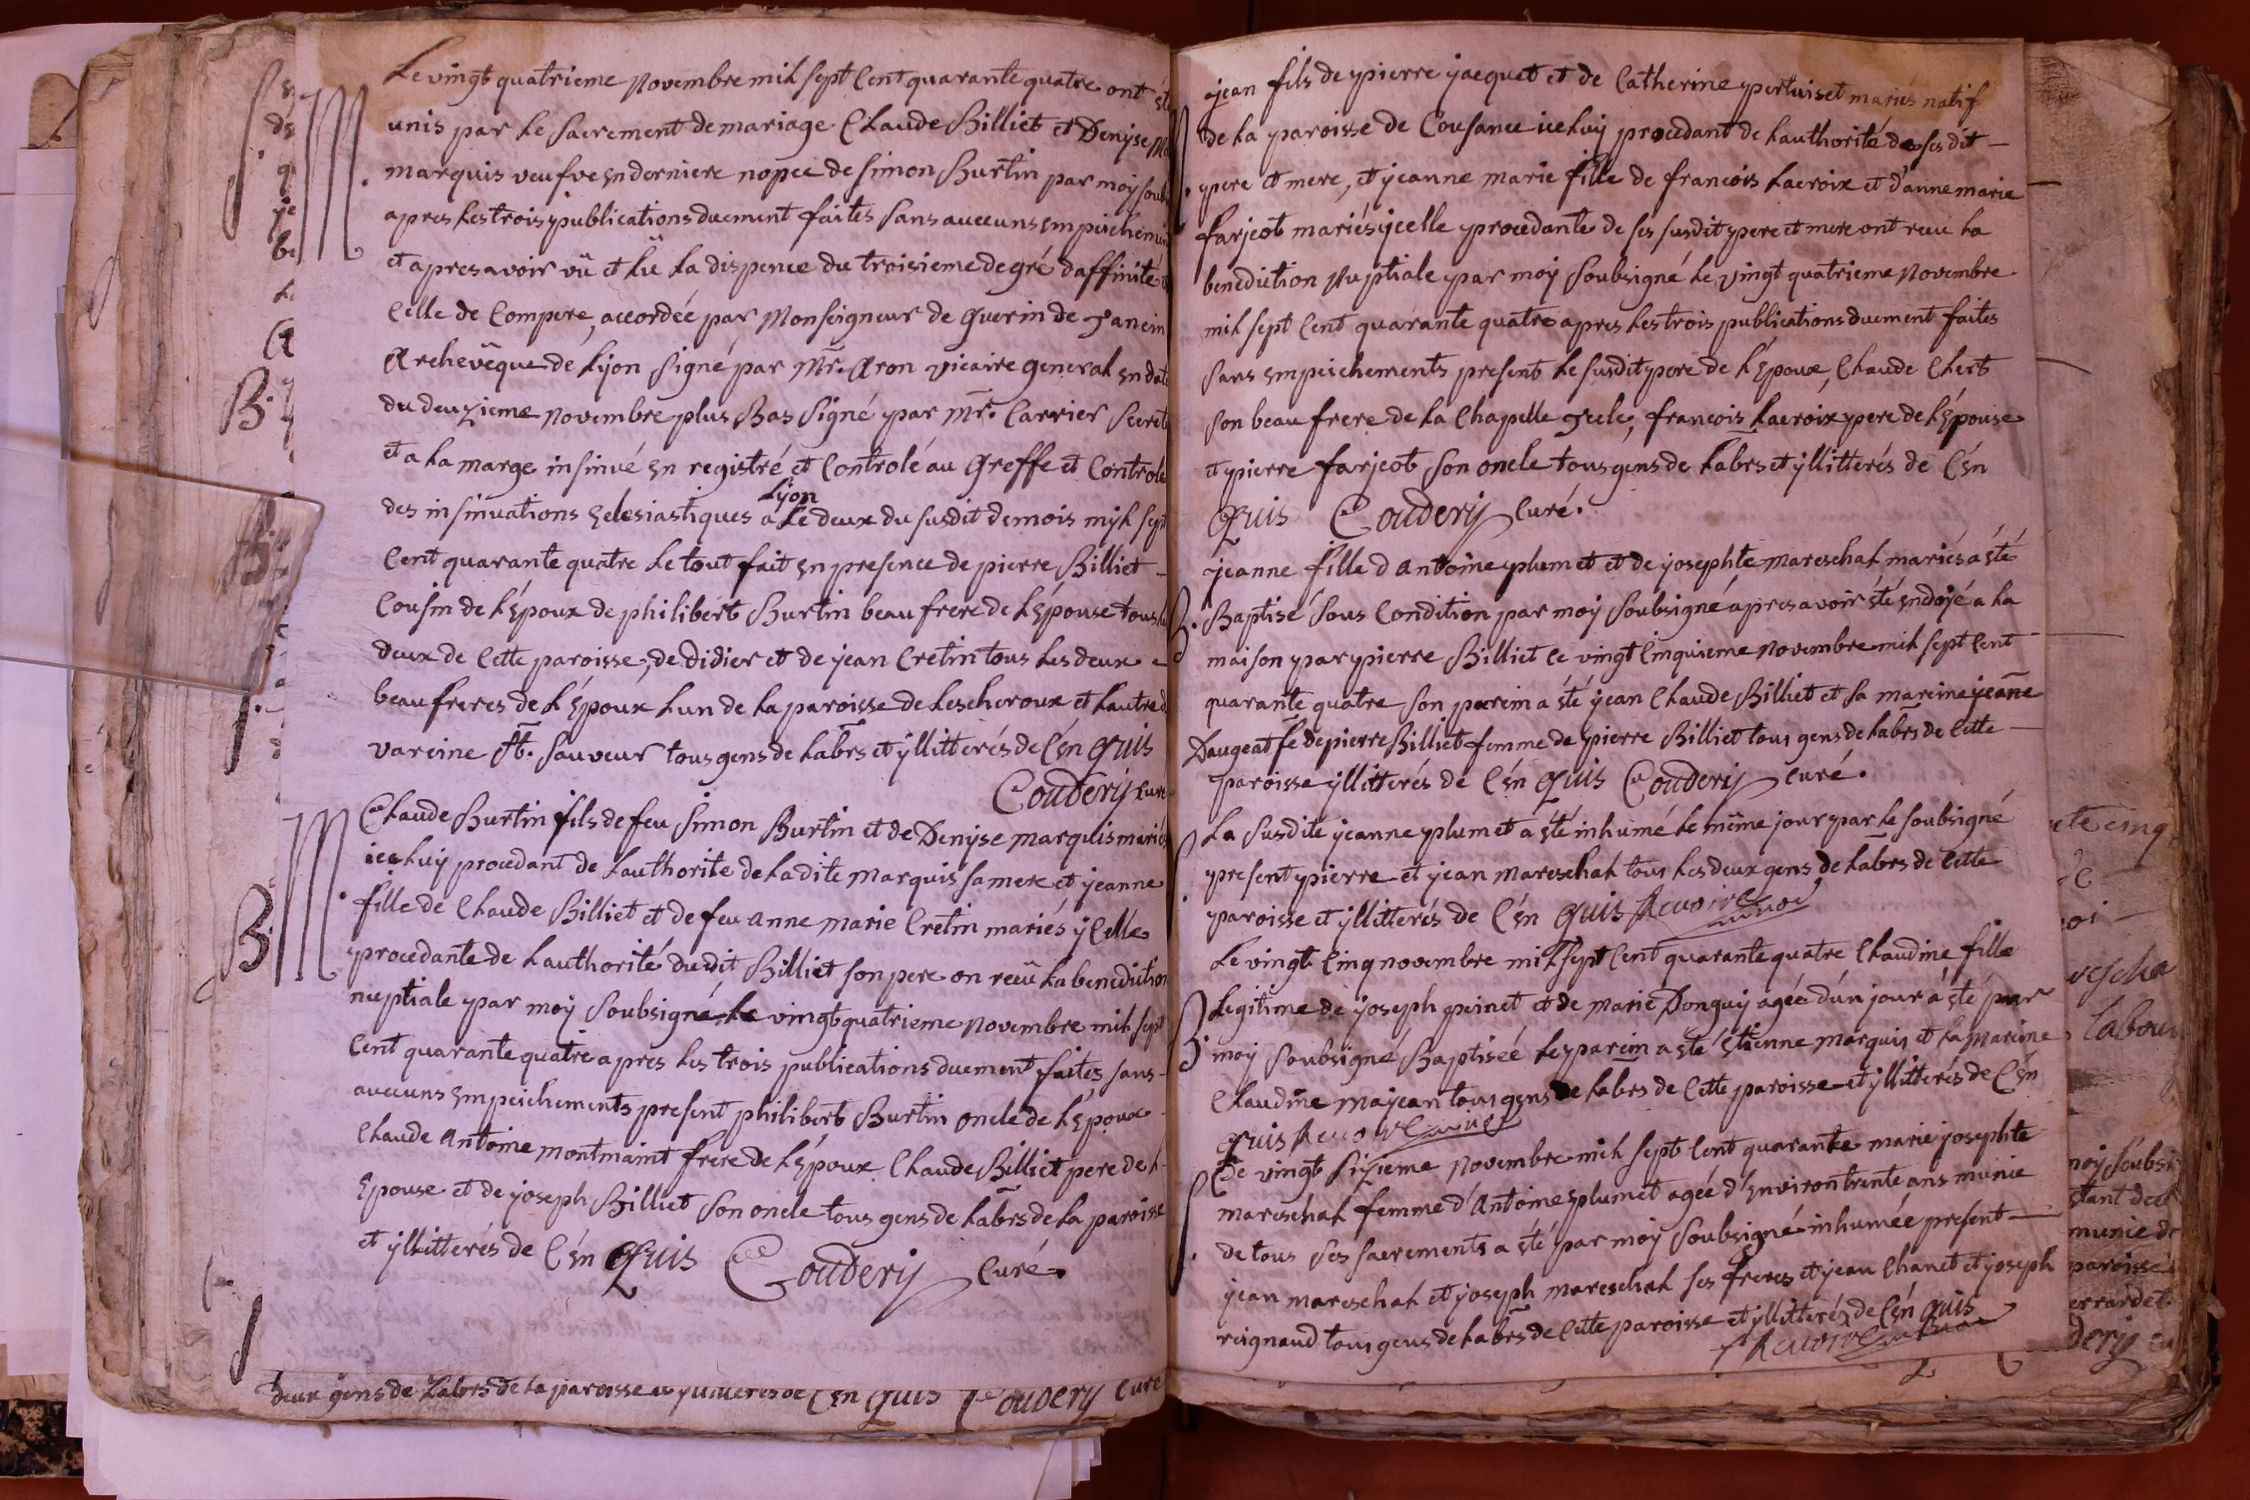 Le vingt quatrieme Novembre mil sept Cent quarante quatre ont été
unis par le sacrement de mariage Claude Billiet et Denÿse
marquis veufve en derniere nopce de simon Burtin par moÿ soub
apres les trois publications duement faites sans auccuns empeichements
et apres avoir vû et lû la dispence du troisieme degré daffinité et
Celle de Compere, accordéé par Monseigneur de Guerin de Tancin
Archevêque de Lÿon signé par Mr. Aron vicaire general en date
du deuzieme Novembre plus Bas signé par Mr. Carrier secret
et a la marge insinué enregistré et Controlé au Greffe et Controle
des insinuations Eclesiastiques a Lÿon Le deux du susdit de mois mÿl sept
Cent quarante quatre le tout fait en presence de pierre Billiet
Cousin de L'Époux de philibert Burtin beau frere de L'Épouse tous les
deux de Cette paroisse, de didier et de jean Cretin tous les deux
beau freres de L'Époux lun de la paroisse de Lescheroux et lautre de
vareine St. sauveur tous gens de labrs et ÿllitterés de C'én Quis
Couderÿ Curé
M. Claude Burtin fils de feu simon Burtin et de Denÿse marquis mariés
iceluÿ procedant de Lauthorité de ladite Marquis sa mere et jeanne
fille de Claude Billiet et de feu anne marie Cretin mariés ÿCelle
procedante de Lauthorité dudit Billiet son pere on reçu la benediction
nuptiale par moÿ soubsigné le vingt quatrieme Novembre mil sept
Cent quarante quatre apres les trois publications duement faites sans
auccuns Empeichements present philibert Burtin oncle de L'Époux
Claude Antoine montmaint frere de L'Époux Claude Billiet pere de L'
Épouse et de joseph Billiet son oncle tous gens de labrs de la paroisse
et ÿllitterés de C'én Quis Couderÿ Curé.
deux gens de Labrs de la paroisse et ÿllitterés de C'én Quis Couderÿ Curé
jean fils de pierre jacquet et de Catherine pertuiset mariés natif
de la paroisse de Cousance iceluÿ procedant de Lauthorité de ses dit
pere et mere, et jeanne marie fille de francois Lacroix et d'anne marie
farjeot mariés ÿcelle procedante de ses susdit pere et mere ont recu la
benediction Nuptiale par moÿ soubsigné le vingt quatrieme Novembre
mil sept Cent quarante quatre apres les trois publications duement faites
sans empeichements present le susdit pere de L'Époux, Claude Clert
son beau frere de la Chapelle Tecle, francois Lacroix pere de L'Épouse
et pierre farjeot son oncle tous gens de Labrs et ÿllitterés de C'én
Quis Couderÿ Curé.
B. jeanne fille d Antoine plumet et de josephte Mareschal mariés a été
Baptisé sous Condition par moÿ soubsigné apres avoir été endoÿé a la
maison par pierre Billiet le vingt Cinquieme Novembre mil sept Cent
quarante quatre son parein a été jean Claude Billiet et sa mareine jeanne
Daugeat fe de pierre Billiet femme de pierre Billiet tous gens de labrs de Cette
paroisse ÿllitterés de C'én Quis Couderÿ Curé.
La susdite jeanne plumet a été inhumé le même jour par le soubsigné
present pierre et jean Mareschal tous les deux gens de labrs de Cette
paroisse et ÿllitterés de C'én Quis
Le vingt Cinq novembre mil sept Cent quarante quatre Claudine fille
B. Legitime de joseph peinet et de Marie Donguÿ agée d'un jour a été par
moÿ soubsigné Baptiséé le parein a été étienne marquis et la Mareine
Claudine majean tous gens de labrs de Cette paroisse et ÿllitterés de C'én
quis
Le vingt sizieme Novembre mil sept Cent quarante marie josephte
mareschal femme d'Antoine plumet agée d'Environ trente ans munie
de tous ses sacrements a été par moÿ soubsigné inhumée present
jean mareschal et joseph mareschal ses freres et jean Chanet et joseph
reignaud tous gens de labrs de Cette paroisse et ÿllitterés de C'én quis